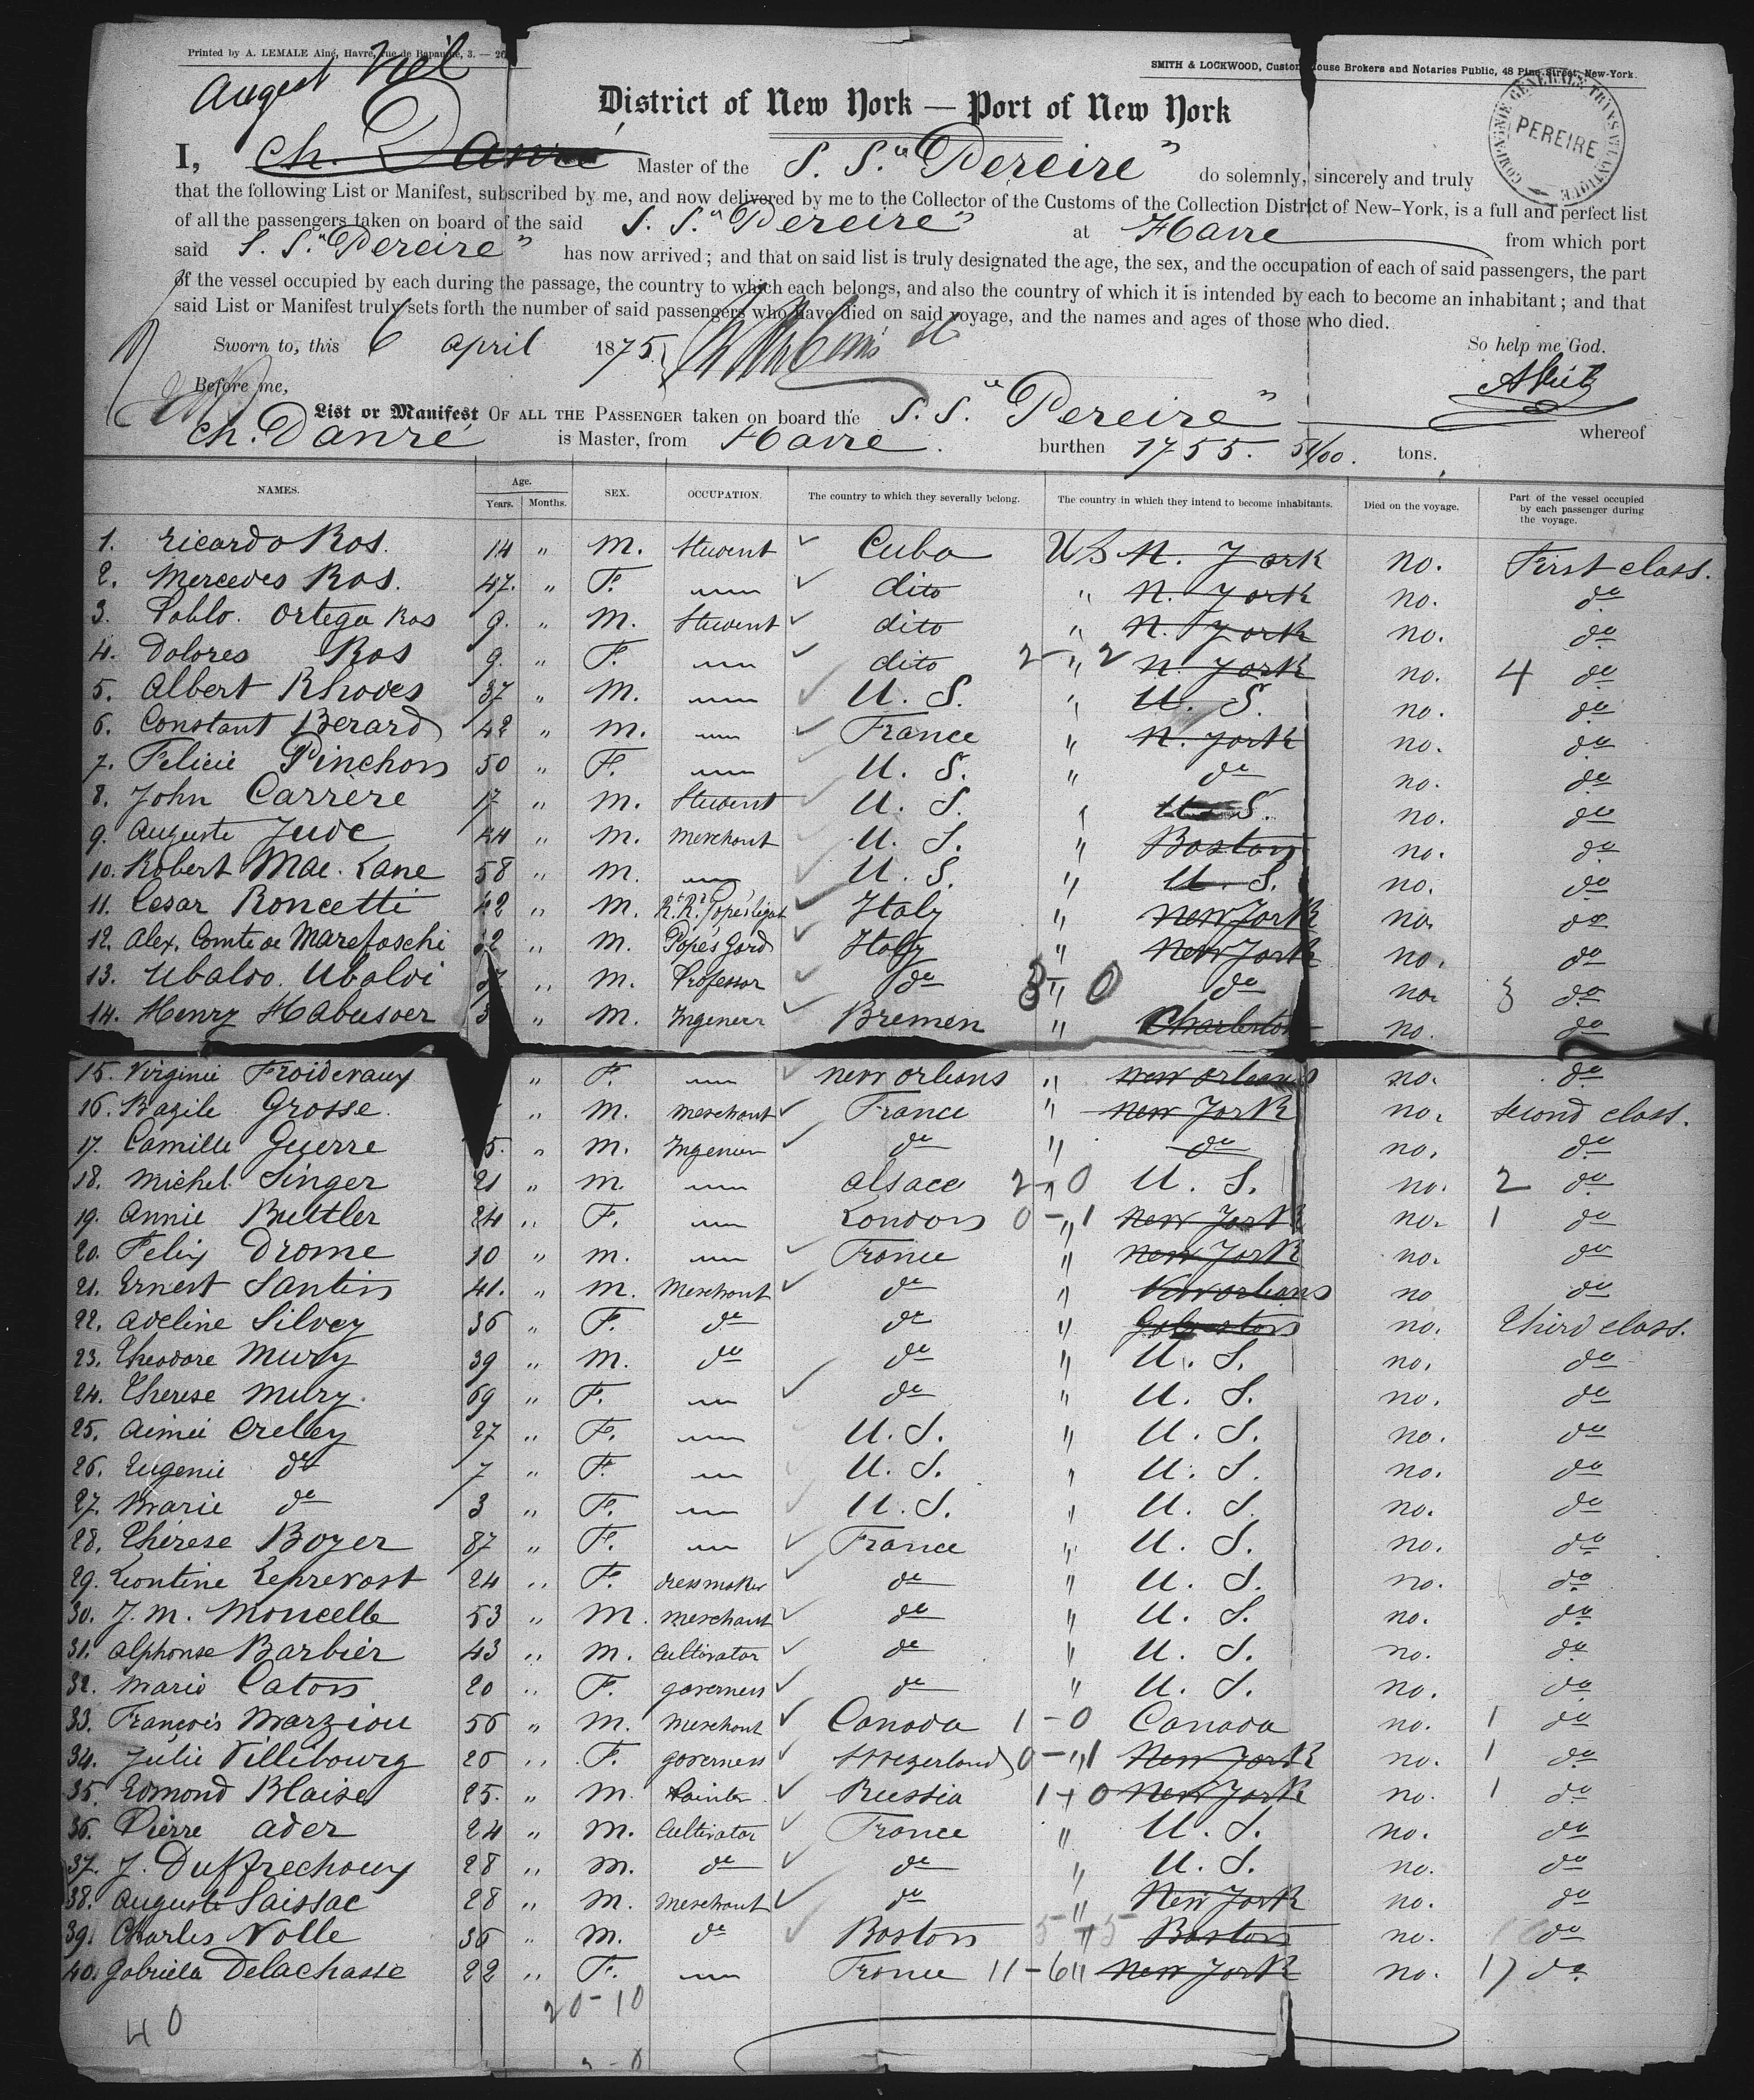 Printed by A. LEMALE Aîné, Havre, rue de Bapaume, 3. —
SMITH & LOCKWOOD, Custom House Brokers and Notaries Public, 48 Pine Street, New-York.
August
District of New York — Port of New York
COMPAGNIE GENERALE TRANSATLANTIQUE
PEREIRE
I, Ch. Danré Master of the S. S. "Pereire" do solemnly, sincerely and truly
that the following List or Manifest, subscribed by me, and now delivered by me to the Collector of the Customs of the Collection District of New-York, is a full and perfect list
of all the passengers taken on board of the said S. S. "Pereire" at Havre from which port
said S. S. "Pereire" has now arrived; and that on said list is truly designated the age, the sex, and the occupation of each of said passengers, the part
of the vessel occupied by each during the passage, the country to which each belongs, and also the country of which it is intended by each to become an inhabitant; and that
said List or Manifest truly sets forth the number of said passengers who have died on said voyage, and the names and ages of those who died.
Sworn to, this 6 April 1875 So help me God.
Before me,
List or Manifest OF ALL THE PASSENGER taken on board the S. S. "Pereire" whereof
Ch. Danré is Master, from Havre. burthen 1755. tons.
NAMES. Age. Years. Months. SEX. OCCUPATION. The country to which they severally belong. The country in which they intend to become inhabitants. Died on the voyage. Part of the vessel occupied by each passenger during the voyage.
1. Ricardo Ros. 14 " M. Student Cuba US N. York no. First class.
2. Mercedes Ros. 47. " F. — dito " N. York no. do
3. Pablo. Ortega Ros 9. " M. Student dito " N. York no. do
4. Dolores Ros 9. " F. — dito 2 - 2 " N. York no. 4 do
5. Albert Rhodes 37 " M. — U. S. " U. S. no. do
6. Constant Berard 42 " M. — France " N. York no. do
7. Felicie Pinchon 50 " F. — U. S. " do no. do
8. John Carrère 17 " M. Student U. S. " U. S. no. do
9. Auguste Jude 44 " M. Merchant U. S. " Boston no. do
10. Robert Mac. Lane 58 " M. — U. S. " U. S. no. do
11. Cesar Roncetti 42 " M. Rt. Rd. Pope's legat Italy " New York no. do
12. Alex. Comte de Marefoschi " M. Pope's Gard Italy " New York no. do
13. Ubaldo. Ubaldi " M. Professor do 3 - 0 " do no. 3 do
14. Henry Habusver 3 " M. Ingeneer Bremen " Charleston no. do
15. Virginie Froidevaux " F. — New Orleans " New Orleans no. do
16. Bazile Grosse. " M. Merchant France " New York no. Second class.
17. Camille Guerre 5. " M. Ingenier do " do no. do
18. Michel Singer 21 " M — Alsace 2 - 0 " U. S. no. 2 do
19. Annie Buttler 24 " F. — London 0 - 1 " New York no. 1 do
20. Felix Drome 10 " M. — France " New York no. do
21. Ernest Santin 41. " M. Merchant do " New Orleans no do
22. Adeline Silvey 36 " F. do do " Galveston no. Third class.
23. Theodore Mury 39 " M. do do " U. S. no. do
24. Therese Mury. 69 " F. — do " U. S. no. do
25. Aimée Creley 27 " F. — U. S. " U. S. no. do
26. Eugenie do 7 " F. — U. S. " U. S. no. do
27. Marie do 3 " F. — U. S. " U. S. no. do
28. Thérese Boyer 87 " F. — France " U. S. no. do
29. Leontine Leprevost 24 " F. dressmaker do " U. S. no. do
30. J. M. Moncelle 53 " M. merchant do " U. S. no. do
31. Alphonse Barbier 43 " M. Cultivator do " U. S. no. do
32. Marie Caton 20 " F. governess do " U. S. no. do
33. François Marziou 56 " M. Merchant Canada 1 - 0 Canada no. 1 do
34. Julie Villibourg 26 " F. governess Swizerland 0 - 1 " New York no. 1 do
35. Edmond Blaise 25. " M. Painter Russia 1 - 0 New York no. 1 do
36. Pierre Ader 24 " M. Cultivator France " U. S. no. do
37. J. Duffrechouy 28 " M. do do " U. S. no. do
38. Auguste Saissac 28 " M. Merchant do " New York no. do
39. Charles Nolle 36 " M. do Boston 5 - 5 " Boston no. do
40. Gabriela Delachasse 22 " F. — France 11 - 6 " New York no. 17 do
20 - 10
40